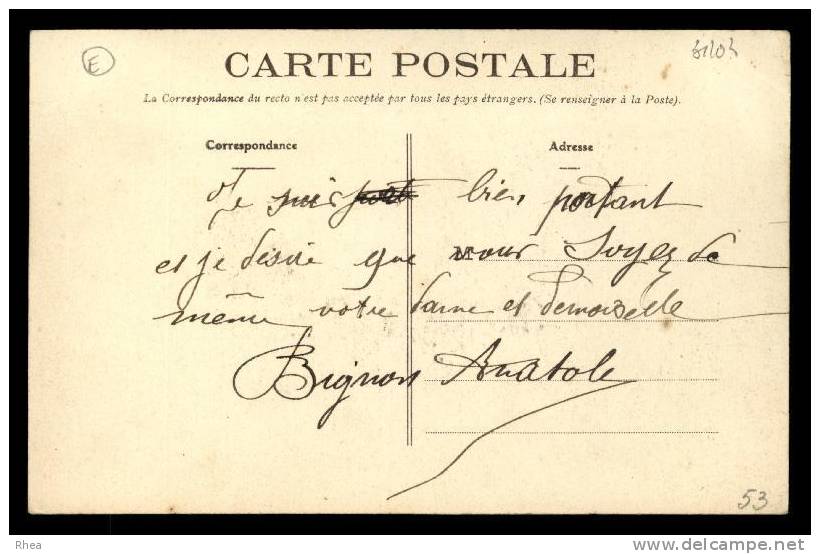 E
CARTE POSTALE
La Correspondance du recto n'est pas acceptée par tous les pays étrangers. (Se renseigner à la Poste).
Correspondance
Adresse
Je suis bien portant
et je desire que vous Soyez de
même votre dame et demoiselle
Bignon Anatole
53
Rhea
www.delcampe.net